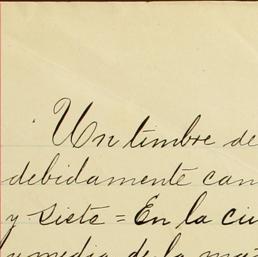 Un timbre de
debidamente can
y siete = En la ciu
y media de la mañ